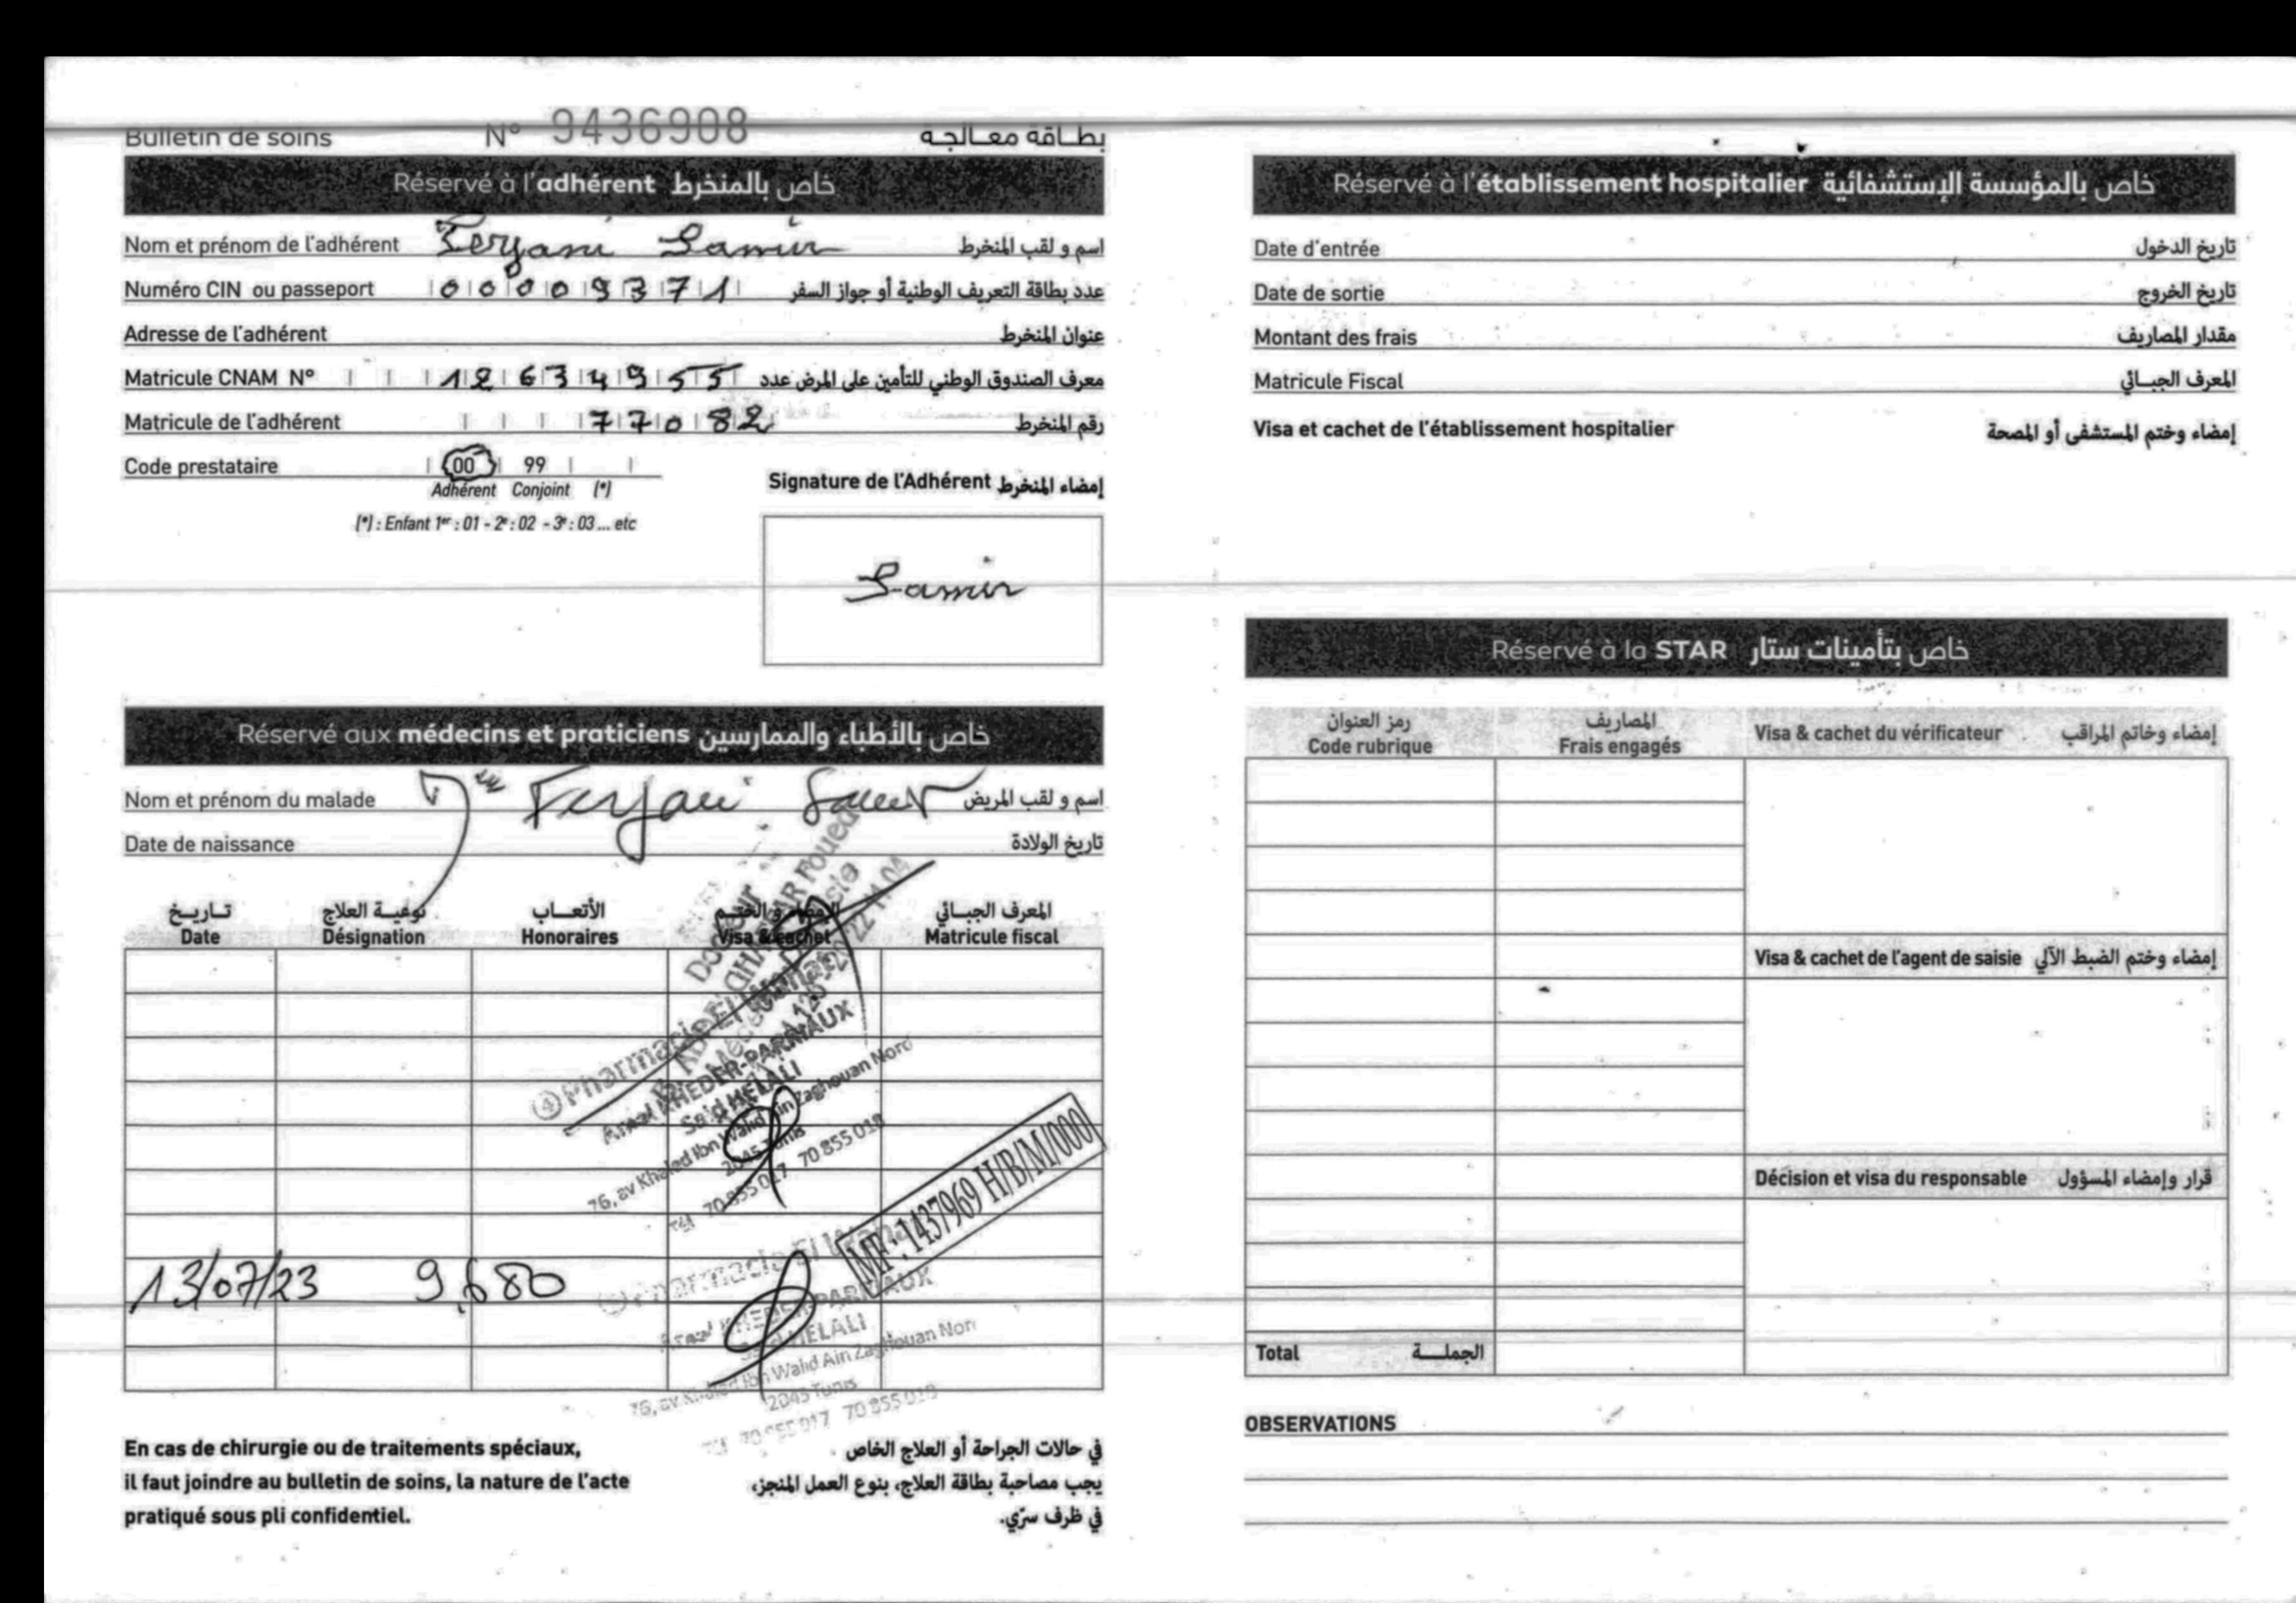 Bulletin de soins N° 9436908 بطاقة معالجة
Réservé à l'adhérent خاص بالمنخرط
Nom et prénom de l'adhérent Ferjani Samir اسم و لقب المنخرط
Numéro CIN ou passeport 00009371 عدد بطاقة التعريف الوطنية أو جواز السفر
Adresse de l'adhérent عنوان المنخرط
Matricule CNAM N° 12634955 معرف الصندوق الوطني للتأمين على المرض عدد
Matricule de l'adhérent 77082 رقم المنخرط
Code prestataire 00 99
Adhérent Conjoint (*)
(*) : Enfant 1er : 01 - 2e : 02 - 3e : 03 ... etc
Signature de l'Adhérent إمضاء المنخرط
Samir
Réservé aux médecins et praticiens خاص بالأطباء والممارسين
Nom et prénom du malade Ferjani Samir اسم و لقب المريض
Date de naissance تاريخ الولادة
تاريخ نوعية العلاج الأتعاب الإمضاء و الختم المعرف الجبائي
Date Désignation Honoraires Visa & cachet Matricule fiscal
Docteur
Pharmacie El
Amel KHEDER-PARRIAUX
Said HELALI
76, av Khaled Ibn Walid Ain Zaghouan Nord
2045 Tunis
Tél 70 855 017 70 855 018
MF : 1437969 H/B/M/000
13/07/23 9,680
Pharmacie El
Amel KHEDER-PARRIAUX
Said HELALI
76, av Khaled Ibn Walid Ain Zaghouan Nord
2045 Tunis
Tél 70 855 017 70 855 018
En cas de chirurgie ou de traitements spéciaux,
il faut joindre au bulletin de soins, la nature de l'acte
pratiqué sous pli confidentiel.
في حالات الجراحة أو العلاج الخاص
يجب مصاحبة بطاقة العلاج، بنوع العمل المنجز،
في ظرف سرّي.
Réservé à l'établissement hospitalier خاص بالمؤسسة الإستشفائية
Date d'entrée تاريخ الدخول
Date de sortie تاريخ الخروج
Montant des frais مقدار المصاريف
Matricule Fiscal المعرف الجبائي
Visa et cachet de l'établissement hospitalier إمضاء وختم المستشفى أو المصحة
Réservé à la STAR خاص بتأمينات ستار
رمز العنوان المصاريف
Code rubrique Frais engagés Visa & cachet du vérificateur إمضاء وخاتم المراقب
Visa & cachet de l'agent de saisie إمضاء وختم الضبط الآلي
Décision et visa du responsable قرار وإمضاء المسؤول
Total الجملة
OBSERVATIONS